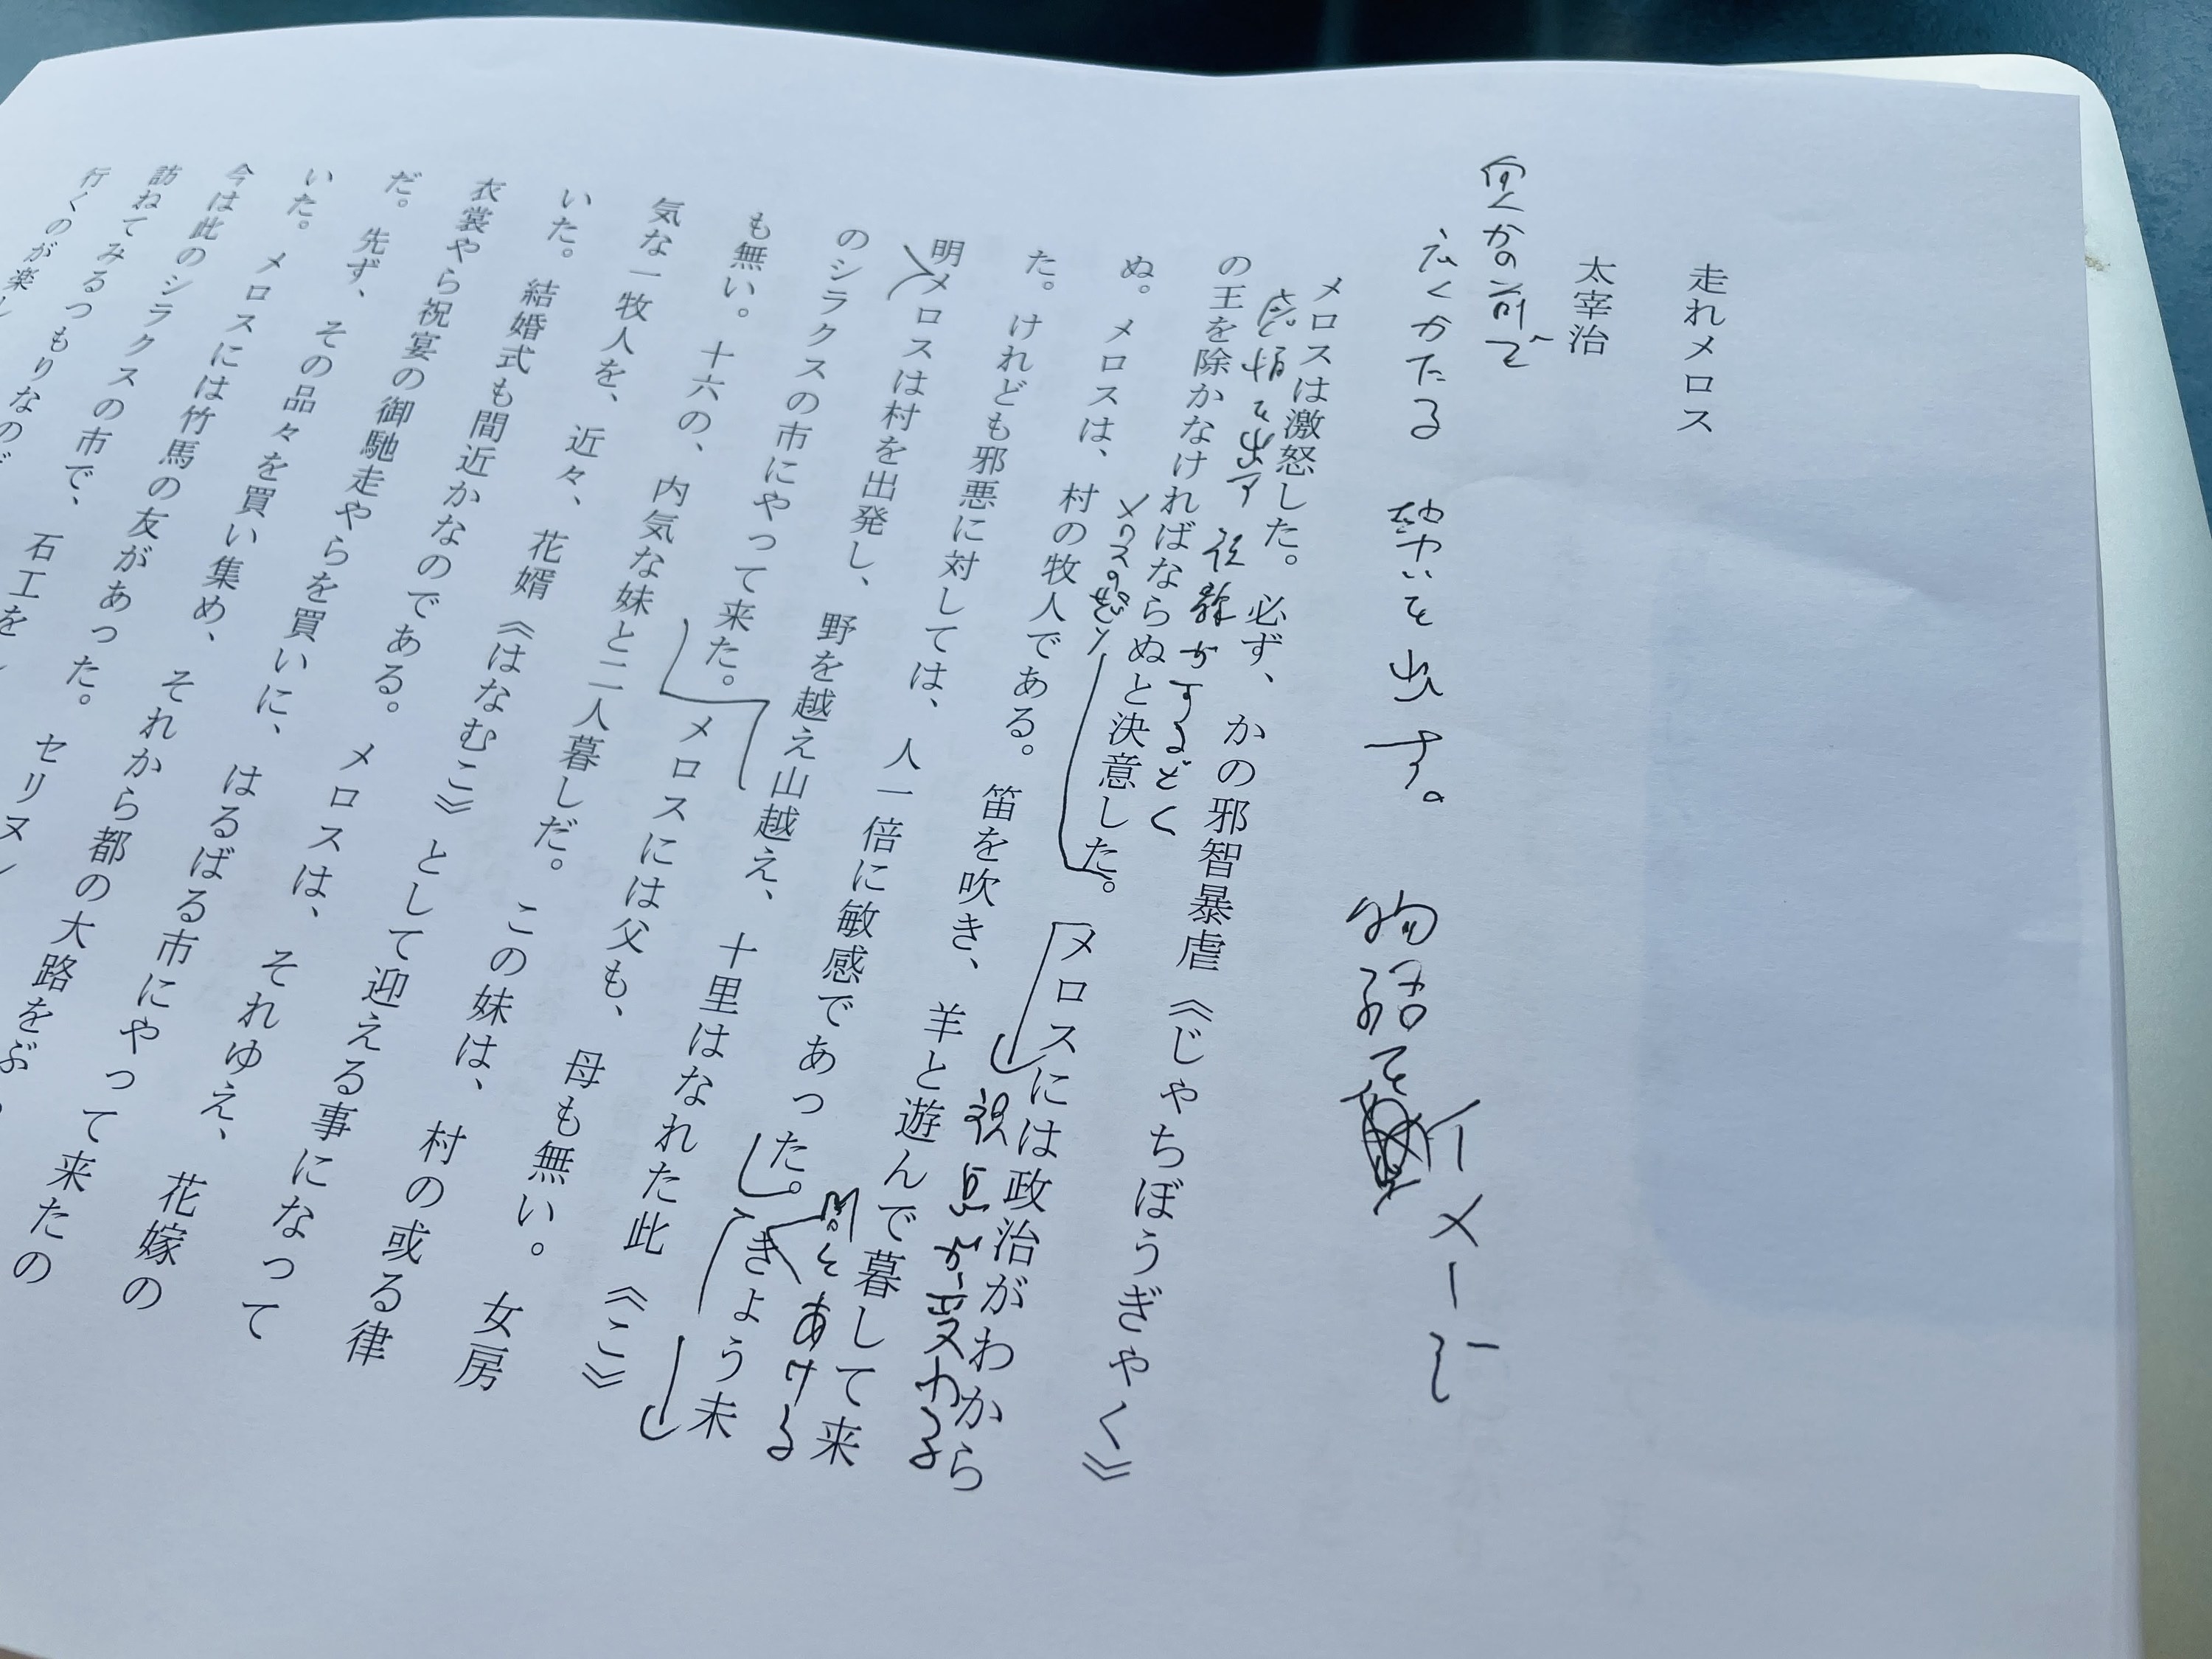 走れメロス
太宰治
広くかたる 勢いを出す。 物語を イメージ
メロスは激怒した。必ず、かの邪智暴虐《じゃちぼうぎゃく》
感情を出す 演説がするどく
の王を除かなければならぬと決意した。メロスには政治がわから
メロスの怒り 視点が変わる
ぬ。メロスは、村の牧人である。笛を吹き、羊と遊んで暮して来
間をあける
た。けれども邪悪に対しては、人一倍に敏感であった。きょう未
明メロスは村を出発し、野を越え山越え、十里はなれた此《こ》
のシラクスの市にやって来た。メロスには父も、母も無い。女房
も無い。十六の、内気な妹と二人暮しだ。この妹は、村の或る律
気な一牧人を、近々、花婿《はなむこ》として迎える事になって
いた。結婚式も間近かなのである。メロスは、それゆえ、花嫁の
衣裳やら祝宴の御馳走やらを買いに、はるばる市にやって来たの
だ。先ず、その品々を買い集め、それから都の大路をぶ
いた。メロスには竹馬の友があった。セリヌン
今は此のシラクスの市で、石工を
訪ねてみるつもりなのだ
行くのが楽し